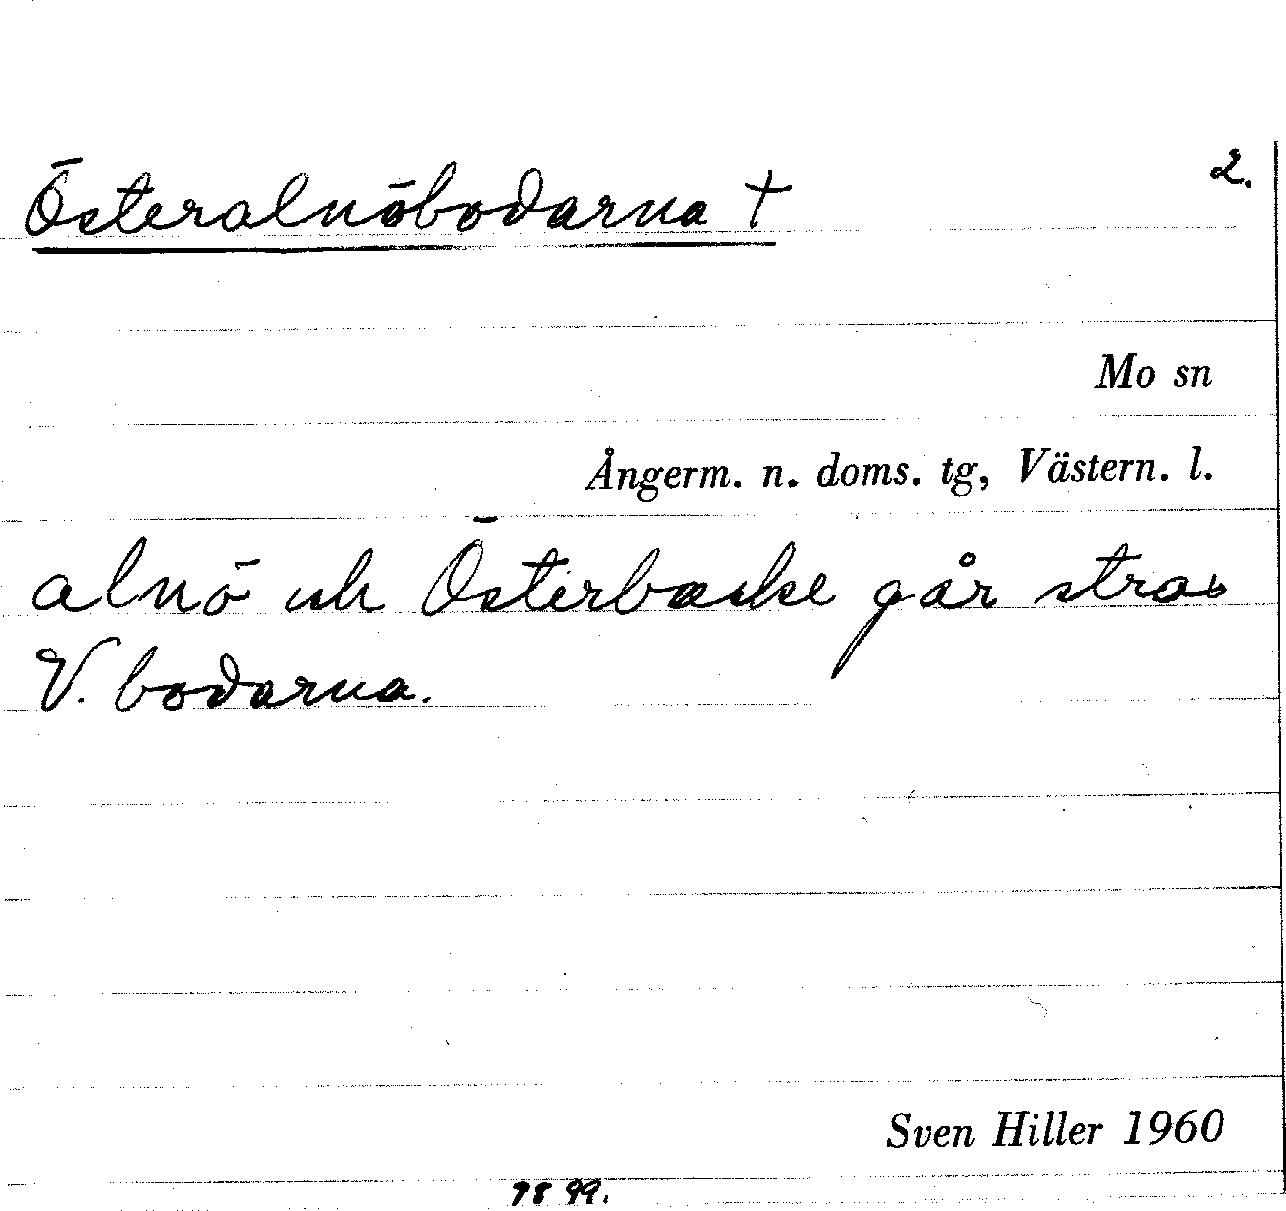 Österalnöbodarna † 2.
Mo sn
Ångerm. n. doms. tg, Västern. l.
alnö och Österbacke går strax
V. bodarna.
Sven Hiller 1960
78 99.